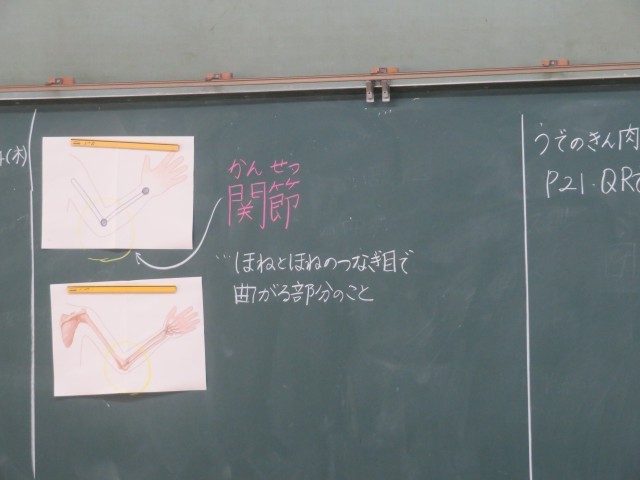 (木)
かんせつ
関節
…ほねとほねのつなぎ目で
曲がる部分のこと
うでのきん肉
P21.QRで